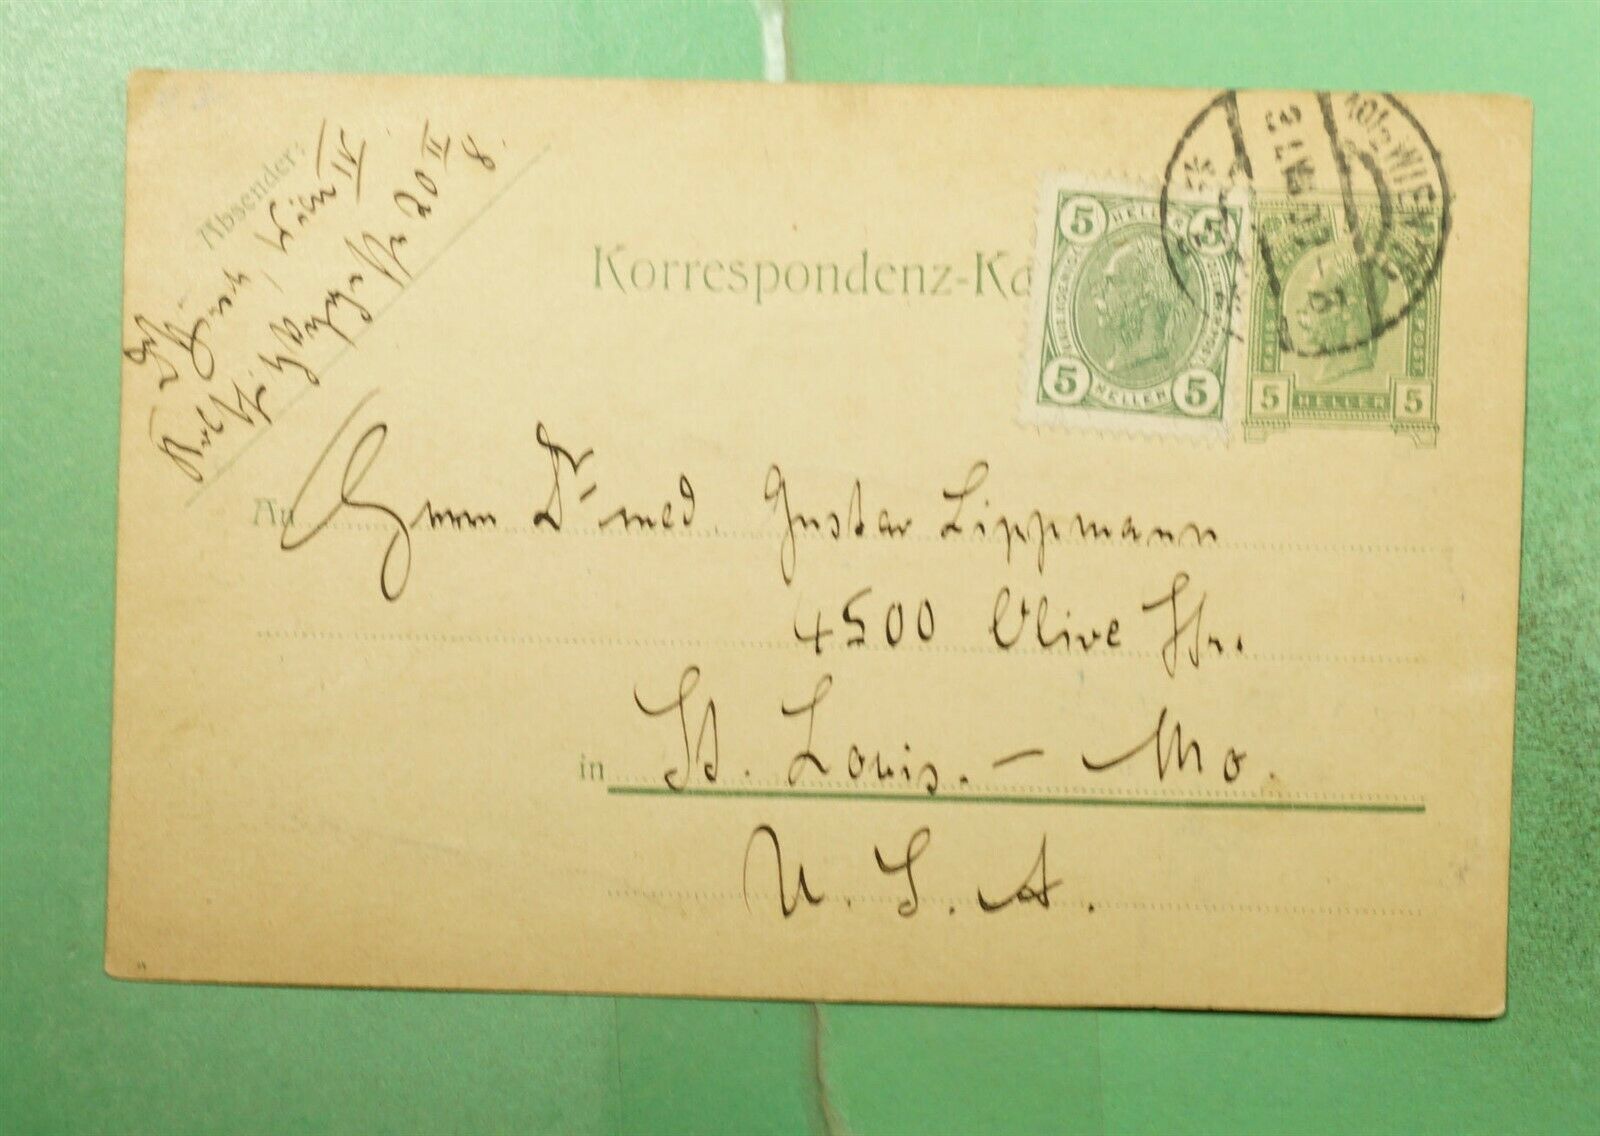 Absender:
Wien IV
20 II 8.
Korrespondenz-Ka
5 HELLER 5
5 HELLER 5
WIEN
5 HELLER 5
An Herrn Dr med. Gustav Lippmann
4500 Olive Str.
in St. Louis. – Mo.
U. S. A.